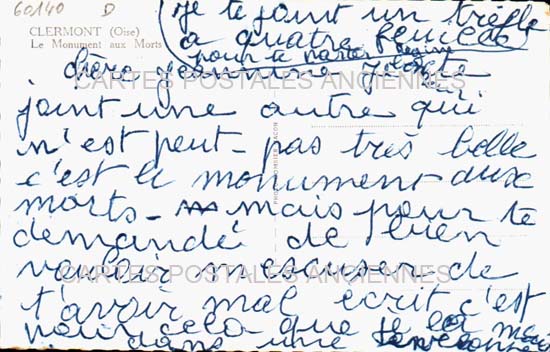 60140 D
CLERMONT (Oise)
Le Monument aux Morts
je te joint un trefle
a quatre feuilles
pour te porter
chère je te
joint une autre qui
n'est peut-pas très belle
c'est le monument aux
morts - mais pour te
demandé de bien
vouloir m'escuser de
t'avoir mal écrit c'est
pour cela que je les
dans une
CARTES POSTALES ANCIENNES
CARTES POSTALES ANCIENNES